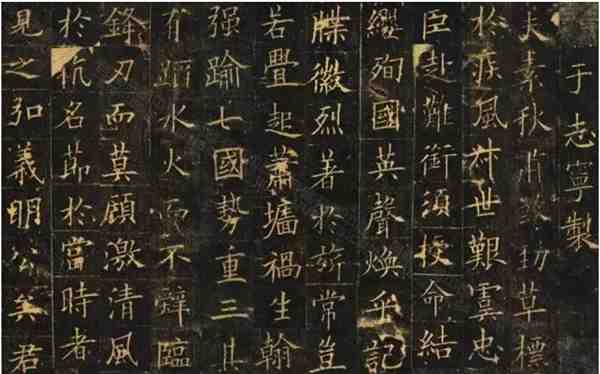 于志寧製
夫素秋肅煞勁草標
於疾風叔世艱虞忠
臣赴難銜須授命結
纓殉國英聲煥乎記
牒徽烈著於旂常豈
若釁起蕭墻禍生翰
強踰七國勢重三其
有蹈水火而不辭臨
鋒刃而莫顧激清風
於抗名節於當時者
見之弘義明公矣君